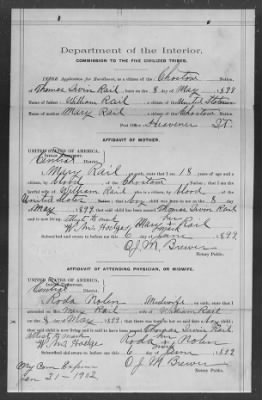 Department of the Interior,
COMMISSION TO THE FIVE CIVILIZED TRIBES.
Application for Enrollment, as a citizen of the Choctaw Nation,
of Thomas Irvin Rail, born on the 8 day of May, 1899
Name of father: William Rail a citizen of the United States
Name of mother: Mary Rail a citizen of the Choctaw Nation.
Post Office Heavener I.T.
AFFIDAVIT OF MOTHER.
UNITED STATES OF AMERICA,
Indian Territory,
Central District.
I, Mary Rail, on oath state that I am 18 years of age and a
citizen, by blood of the Choctaw Nation;
that I am the lawful wife of William Rail, who is a citizen, by blood of the
United States; that a boy child was born to me on the 8
day of May, 1899, that said child has been named Thomas Irvin Rail
her
Mary x Rail
mark
W. M. Hodges
Subscribed and sworn to before me this 6 day of June, 1899
O. J. M. Brewer
Notary Public.
AFFIDAVIT OF ATTENDING PHYSICIAN, OR MIDWIFE.
UNITED STATES OF AMERICA,
Indian Territory,
Central District.
I, Roda Nolen, a Midwife, on oath, state that I
attended on Mrs. Mary Rail, wife of William Rail
on the 8 day of May, 1899, that there was born to her on said date a boy
child; that said child is now living and is said to have been named Thomas Irvin Rail
her
W. M. Hodges
Roda x Nolen
mark
Subscribed and sworn to before me this 6 day of June, 1899
O. J. M. Brewer
Notary Public.
My Com Expires
Jan 21 - 1902